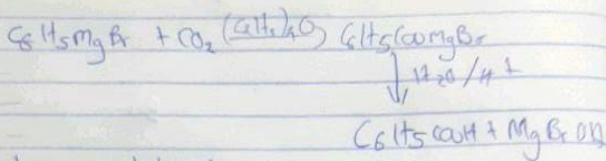 C6H5MgBr + CO2 (C2H5)2O C6H5COOMgBr
H2O/H+
C6H5COOH + MgBrOH